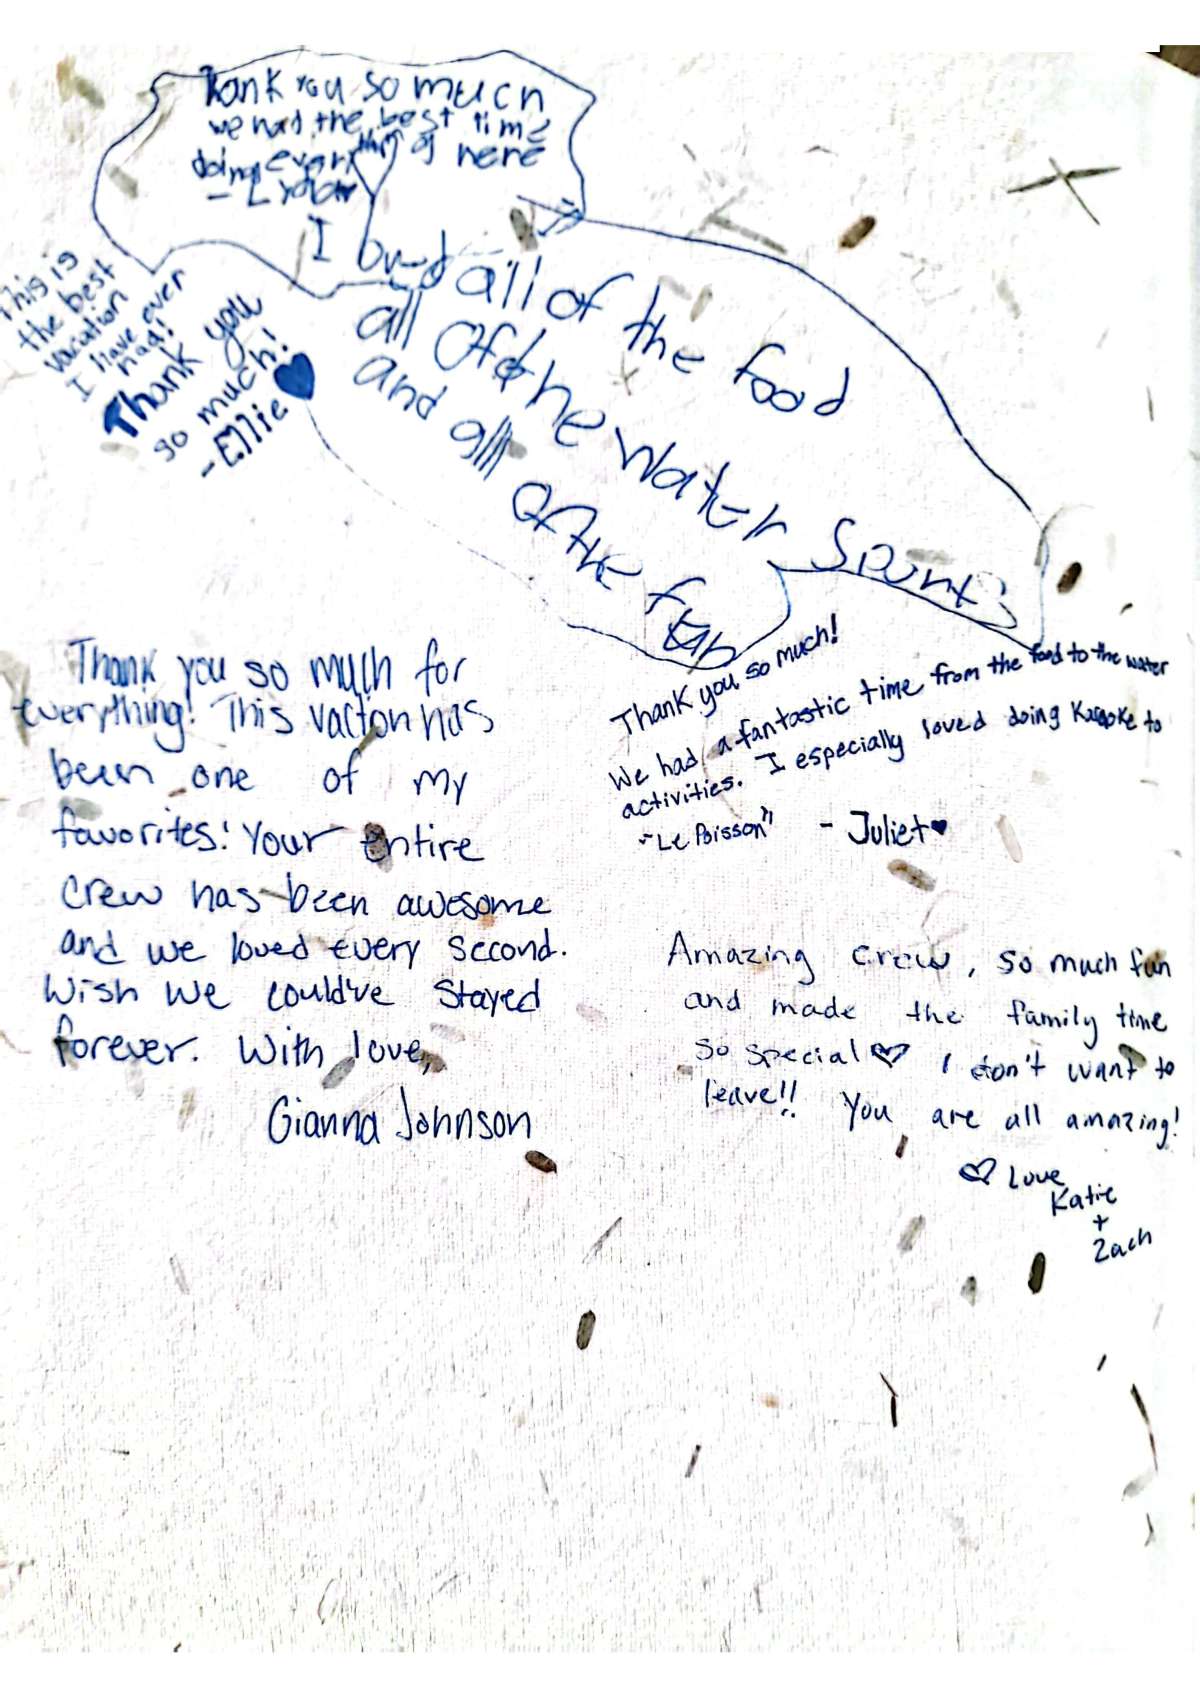 Thank you so much
we had the best time
doing everything here
I loved all of the food
all of the water sports
and all of the fun
This is
the best
vacation
I have ever
had!
Thank you
so much!
-Ellie
Thank you so much for
everything! This vaction has
been one of my
favorites! Your entire
crew has been awesome
and we loved every second.
Wish we could've stayed
forever. With love,
Gianna Johnson
Thank you so much!
We had a fantastic time from the food to the water
activities. I especially loved doing Karaoke to
"Le Poisson" - Juliet
Amazing crew, so much fun
and made the family time
so special I don't want to
leave!! You are all amazing!
Love
Katie
+
Zach